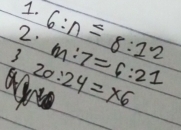 1. 6:n = 8:12
2. m:7=6:21
3 20:24=x6